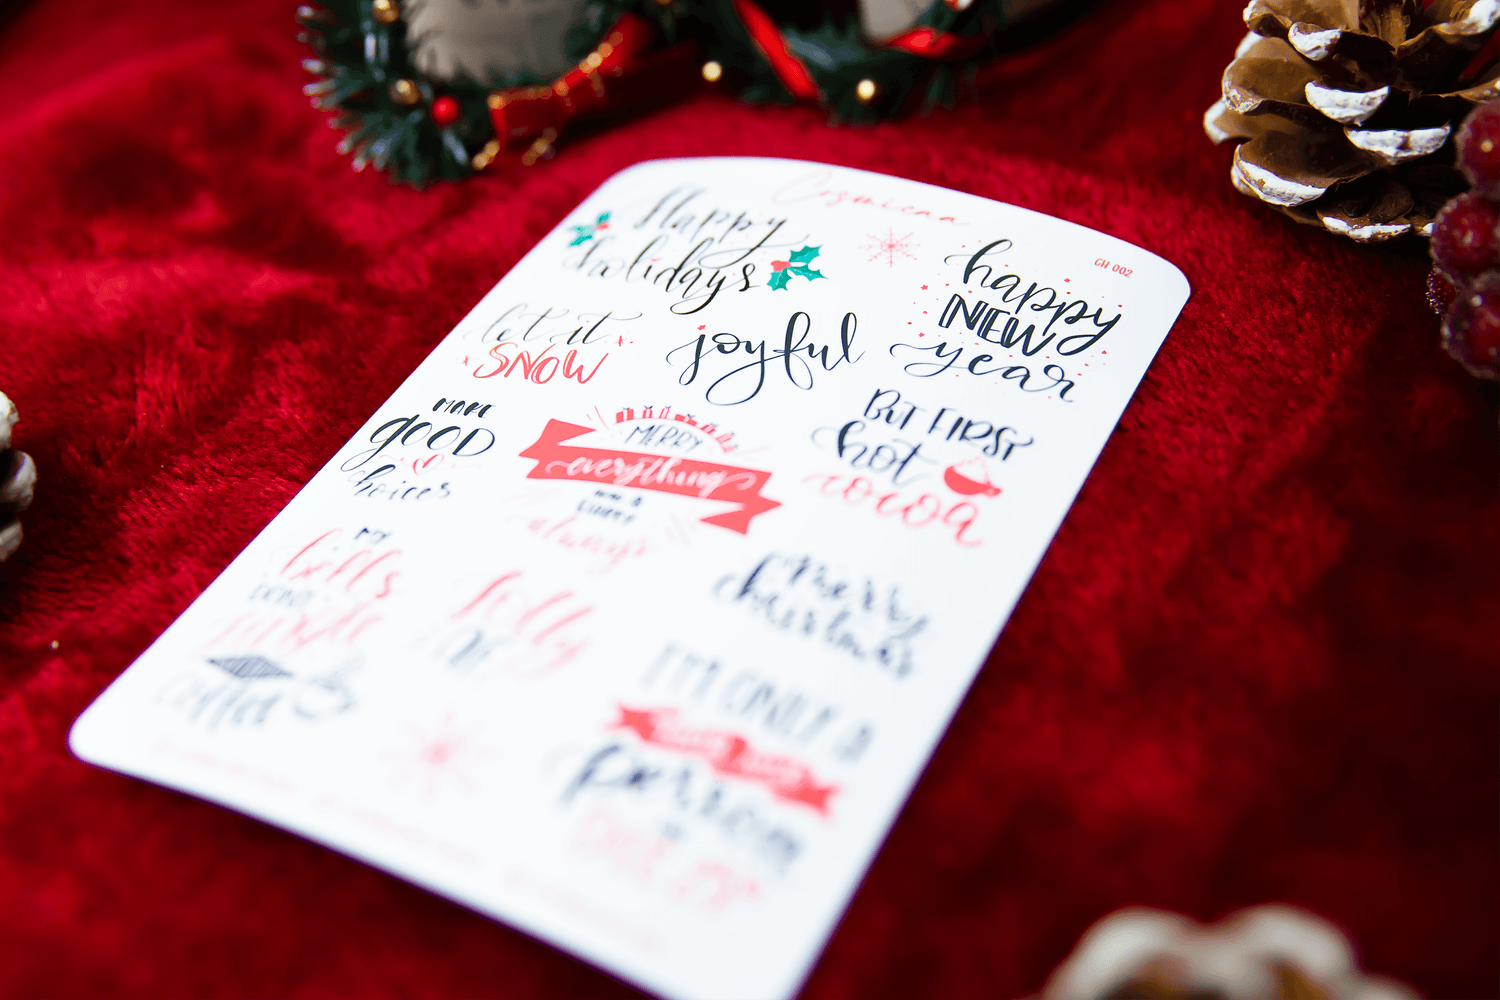 Cozmicaa
GH 002
Happy
holidays
happy
NEW
year
let it
SNOW
joyful
MAKE
GOOD
choices
MERRY
everything
AND A
HAPPY
always
BUT FIRST
hot
cocoa
MY
bells
DON'T
jingle
coffee
Holly
merry
christmas
I'M ONLY A
person